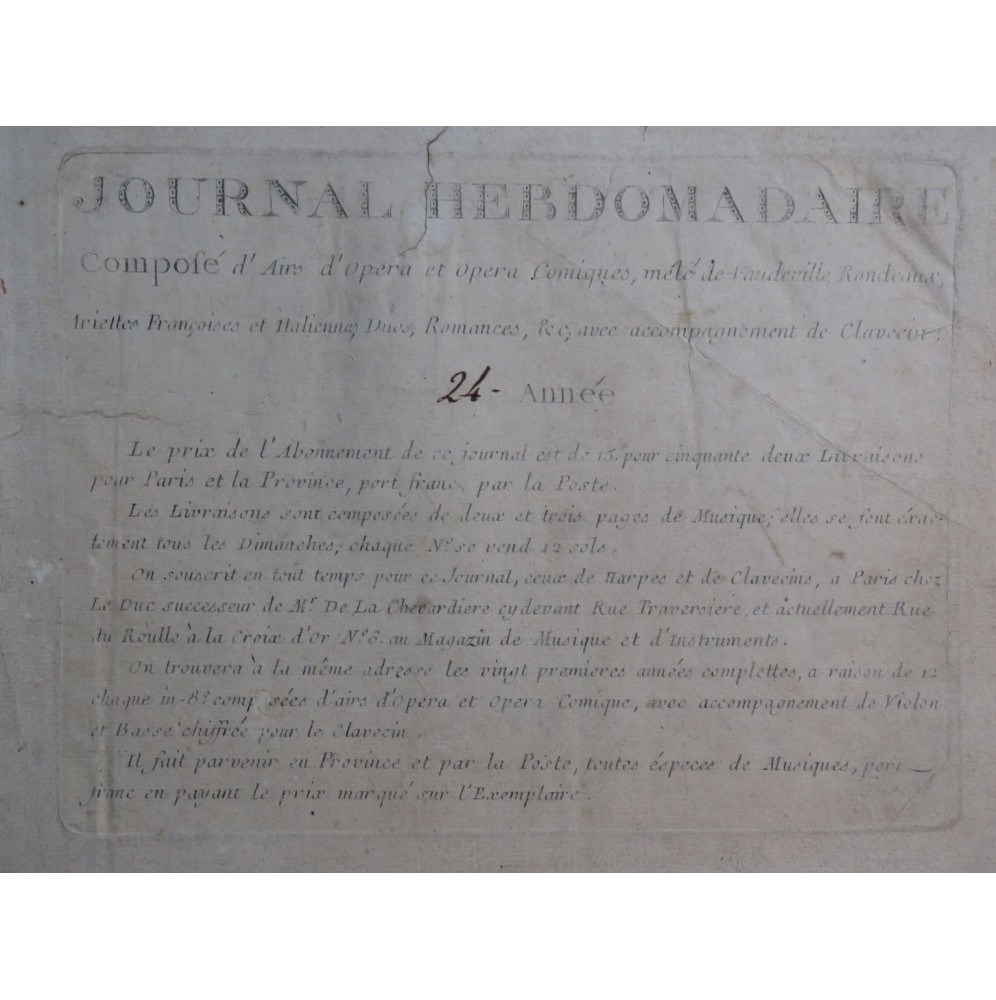 JOURNAL HEBDOMADAIRE
Composé d'Airs d'Opera et Opera Comiques, mêlé de Vaudeville, Rondeaux,
Ariettes Françoises et Italiennes, Duos, Romances, &c, avec accompagnement de Clavecin.
24- Année
Le prix de l'Abonnement de ce journal est de 15. pour cinquante deux Livraisons
pour Paris et la Province, port franc, par la Poste.
Les Livraisons sont composées de deux et trois pages de Musique; elles se font éxac-
tement tous les Dimanches; chaque N.º se vend 12 sols.
On souscrit en tout temps pour ce Journal, ceux de Harpes et de Clavecins, a Paris chez
Le Duc successeur de M.r De La Chevardiere cydevant Rue Traversiere, et actuellement Rue
du Roulle à la Croix d'Or N.º 6. au Magazin de Musique et d'Instruments.
On trouvera à la même adresse les vingt premieres années complettes, a raison de 12
chaque in-8.º composées d'airs d'Opera et Opera Comique, avec accompagnement de Violon
et Basse chiffrée pour le Clavecin.
Il fait parvenir en Province et par la Poste, toutes éspeces de Musiques, port
franc en payant le prix marqué sur l'Exemplaire.